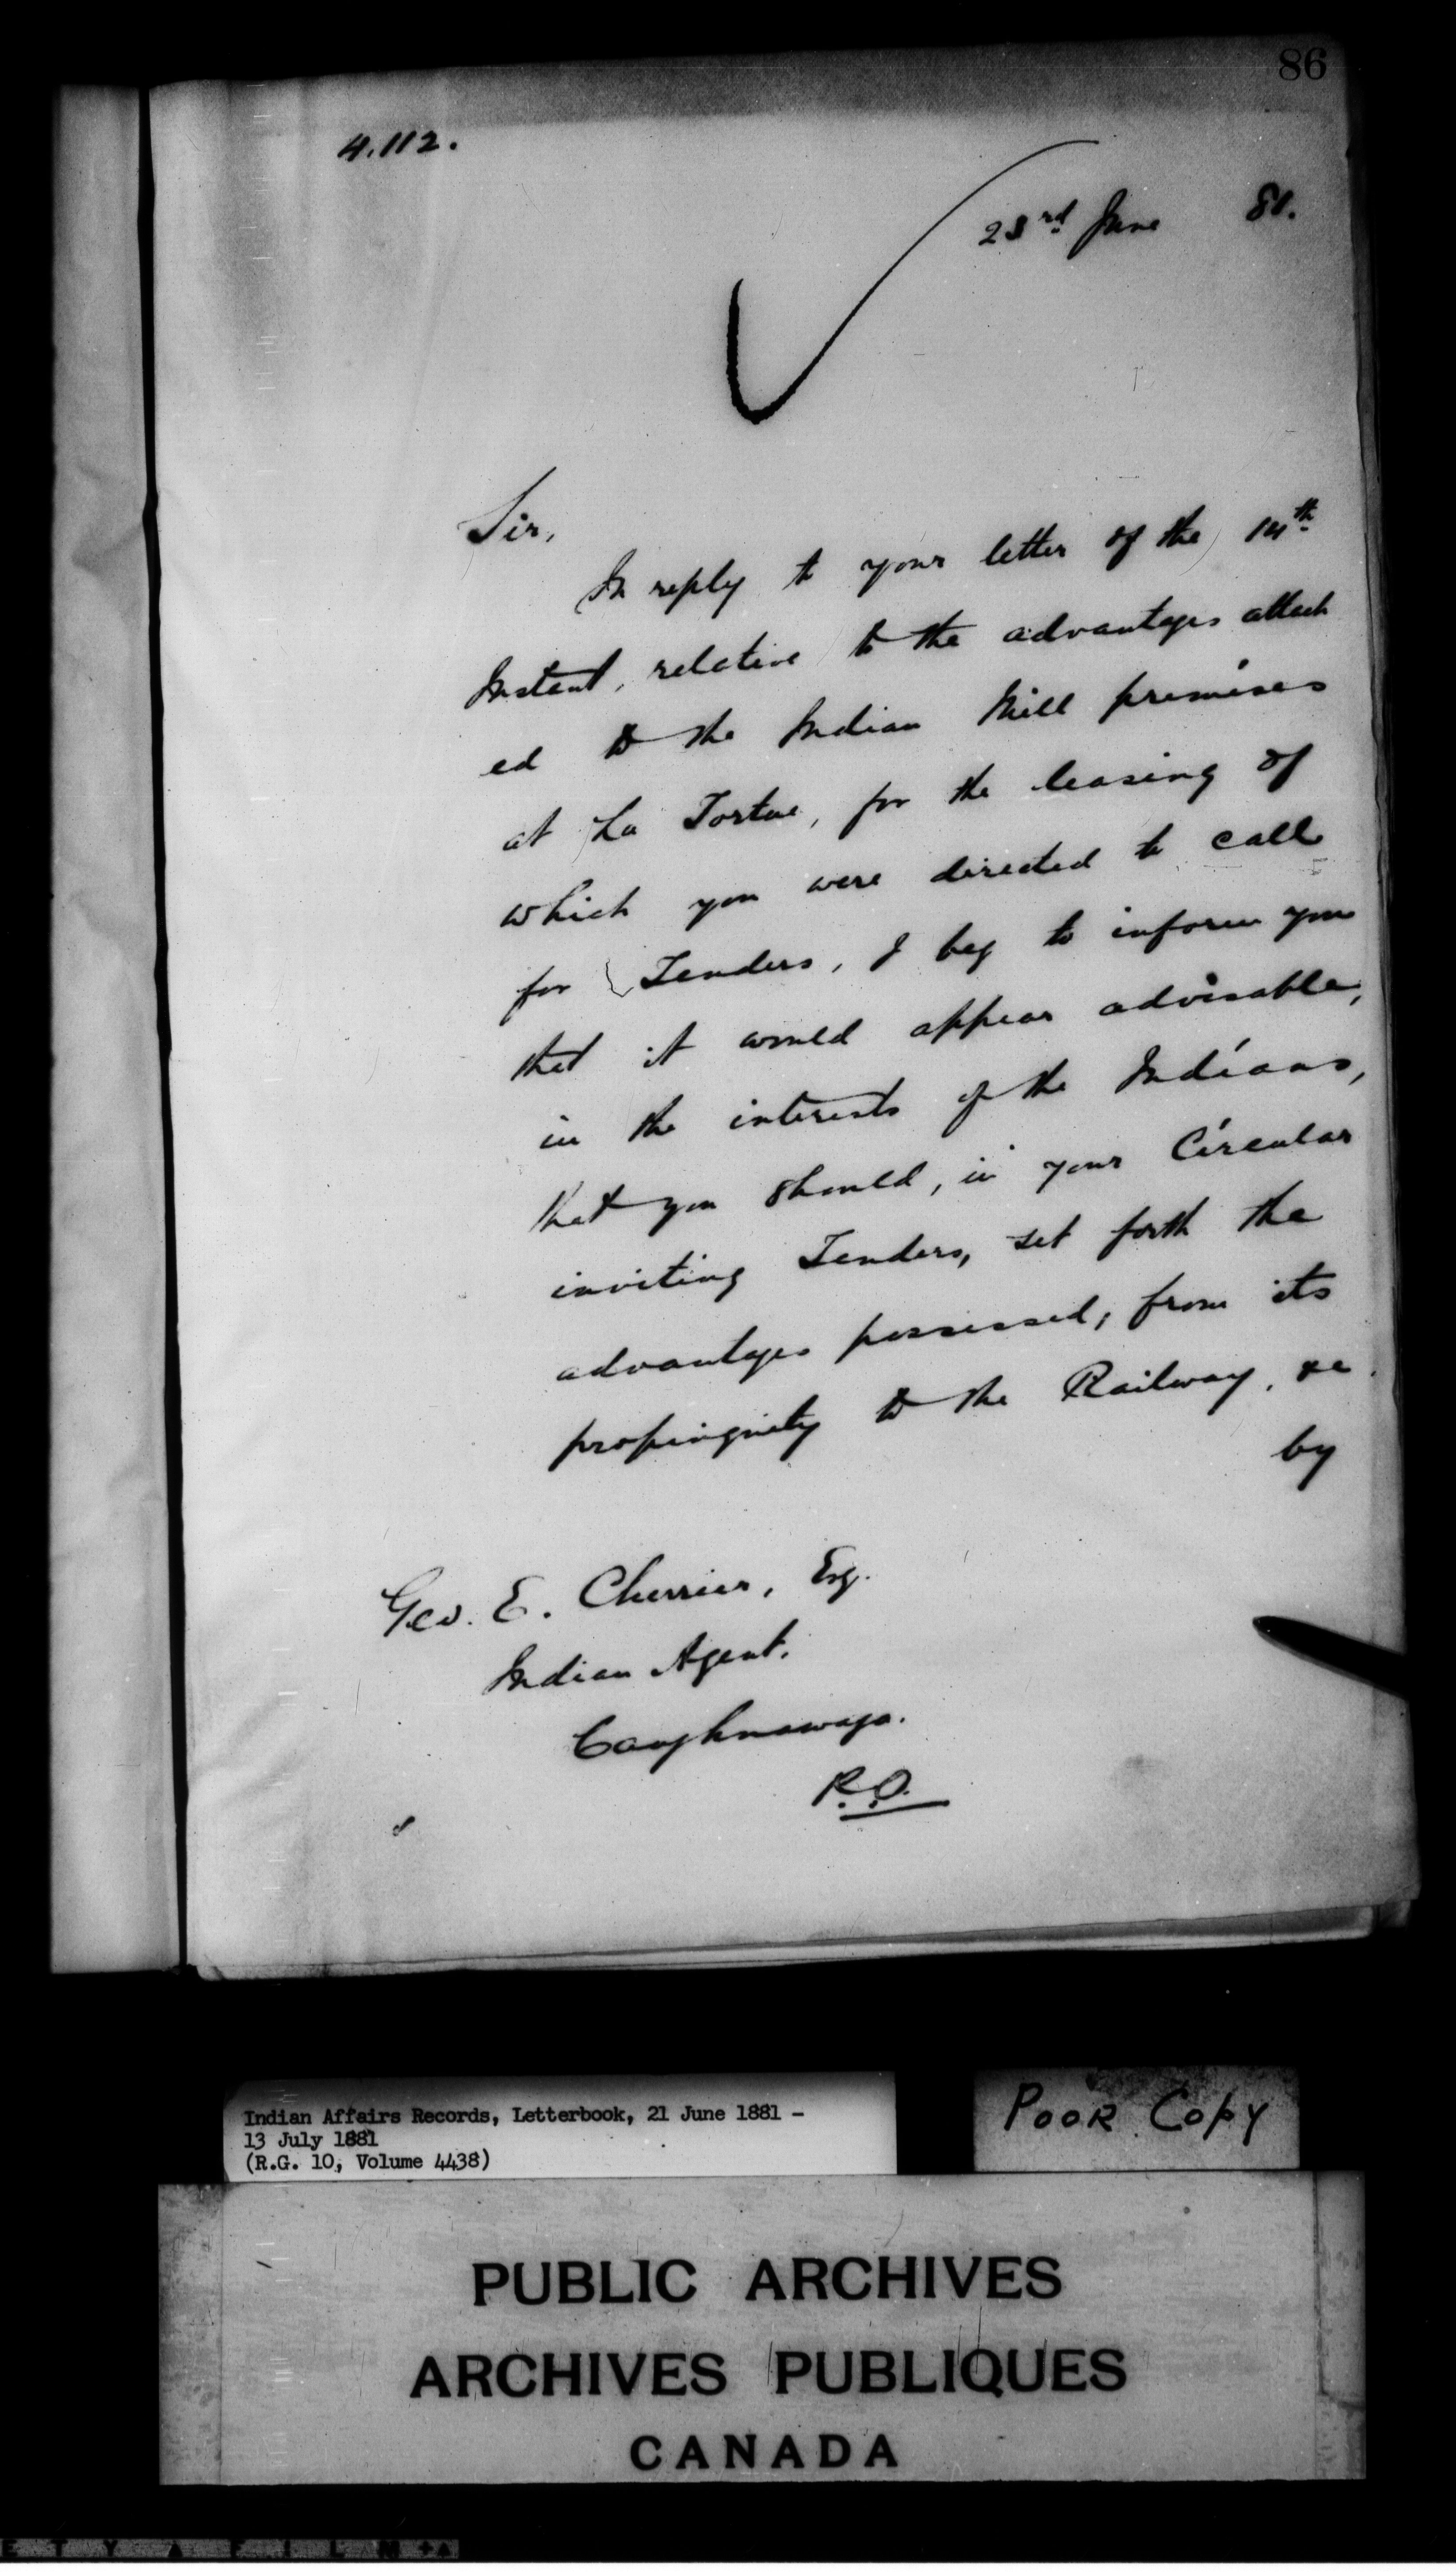 86
4.112.
23rd June 81.
Sir,
In reply to your letter of the 14th
Instant, relative to the advantages attach
ed to the Indian Mill premises
at La Tortue, for the leasing of
which you were directed to call
for Tenders, I beg to inform you
that it would appear advisable,
in the interests of the Indians,
that you should, in your Circular
inviting Tenders, set forth the
advantages possessed, from its
propinquity to the Railway, &c
by
Geo. E. Cherrier, Esq.
Indian Agent.
Caughnawaga.
P.Q.
Indian Affairs Records, Letterbook, 21 June 1881 -
13 July 1881
(R.G. 10, Volume 4438)
POOR Copy
PUBLIC ARCHIVES
ARCHIVES PUBLIQUES
CANADA